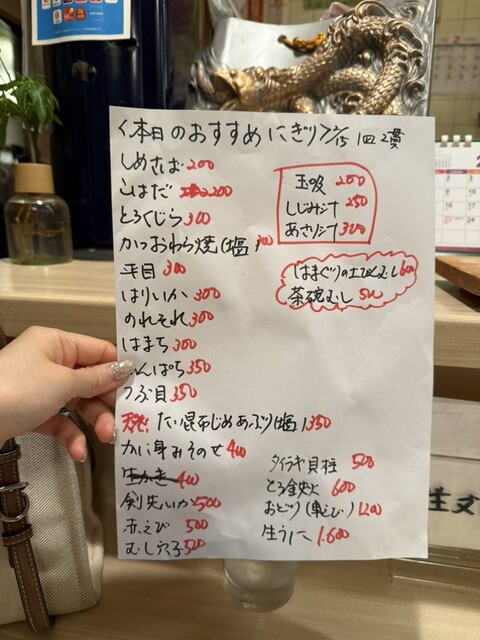 〈本日のおすすめにぎり〉2/15 1皿2貫
しめさば 200
こはだ 200
とろくじら 300
かつおわら焼(塩) 300
平目 300
はりいか 300
のれそれ 300
はまち 300
かんぱち 350
つぶ貝 350
天然!たい昆布じめあぶり(塩) 350
かに身みそのせ 400
生かき 400
剣先いか 500
赤えび 500
むし穴子 500
玉吸 200
しじみ汁 250
あさり汁 300
(はまぐり)の土びんむし 600
茶碗むし 500
タイラギ貝柱 500
とろ金火 600
おどり(車えび) 1200
生うに 1.600
生文